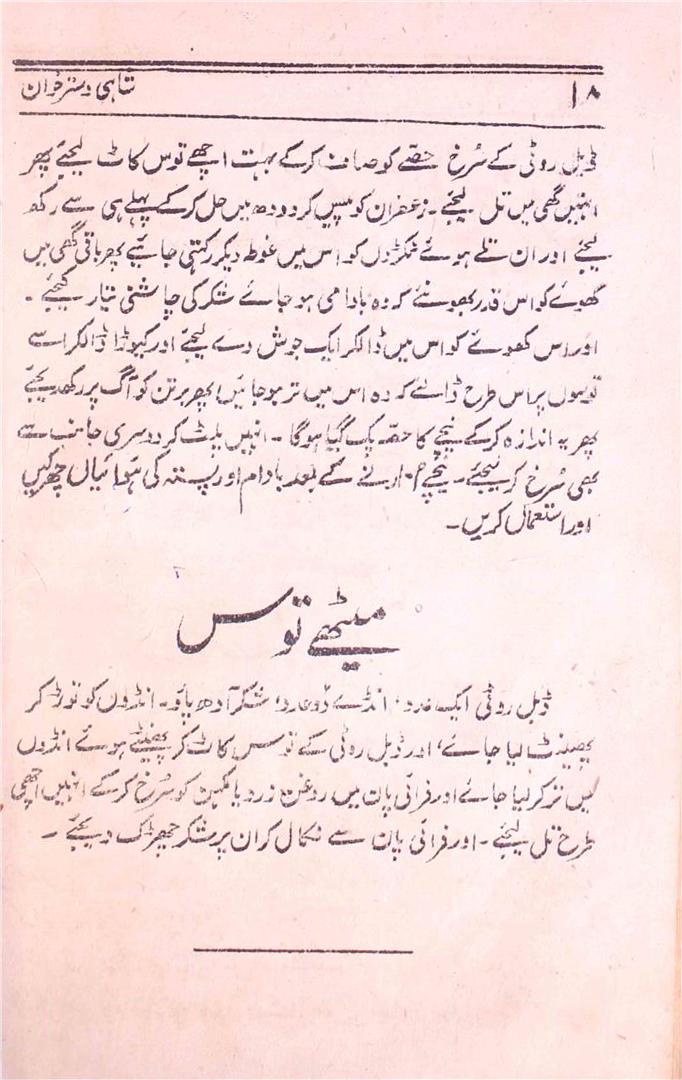 ۱۸
شاہی دسترخوان
ڈبل روٹی کے سُرخ حصّے کو صاف کرکے بہت اچھے توس کاٹ لیجئے پھر
انہیں گھی میں تل لیجئے۔ زعفران کو پیس کر دودھ میں حل کرکے پہلے ہی سے رکھ
لیجئے اور ان تلے ہوئے ٹکڑوں کو اس میں غوطہ دیکر رکھتی جائیے پھر باقی گھی میں
کھوئے کو اس قدر بھونئے کہ وہ بادامی ہو جائے شکر کی چاشنی تیار کیجئے۔
اور اس کھوئے کو اس میں ڈالکر ایک جوش دے لیجئے اور کیوڑا ڈالکر اسے
توسوں پر اس طرح ڈالئے کہ وہ اس میں تر ہو جائیں پھر برتن کو آگ پر رکھدیجئے
پھر یہ اندازہ کرکے نیچے کا حصّہ پک گیا ہوگا۔ انہیں پلٹ کر دوسری جانب سے
بھی سُرخ کر لیجئے۔ نیچے اتارنے کے بعد بادام اور پستہ کی ہوائیاں چھڑکیں
اور استعمال کریں۔
میٹھے توس
ڈبل روٹی ایک عدد، انڈے دو عدد، شکر آدھ پاؤ۔ انڈوں کو توڑ کر
پھینٹ لیا جائے، اور ڈبل روٹی کے توس کاٹ کر پھینٹے ہوئے انڈوں
میں تر کر لیا جائے اور فرائی پان میں روغن زرد یا مکھن کو سُرخ کرکے انہیں اچھی
طرح تل لیجئے۔ اور فرائی پان سے نکال کر ان پر شکر چھڑک دیجئے۔